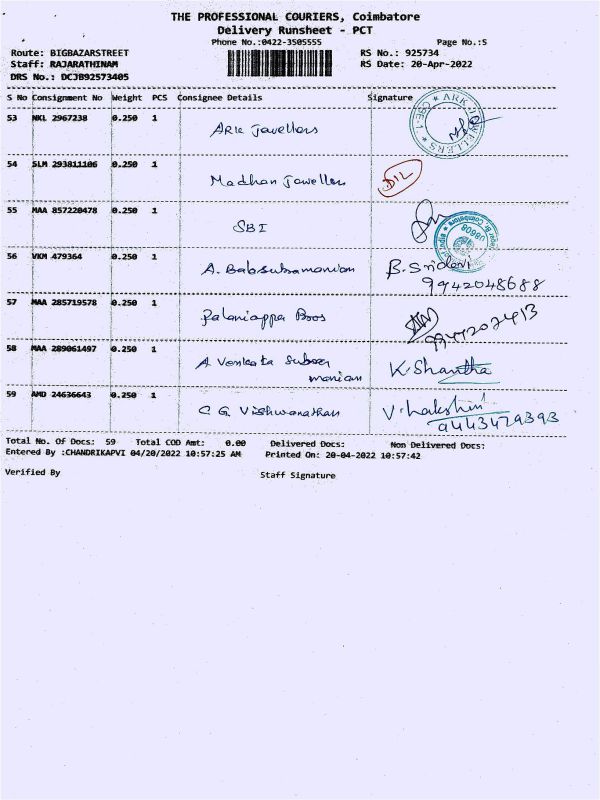 THE PROFESSIONAL COURIERS, Coimbatore
Delivery Runsheet - PCT
Phone No.:0422-3505555 Page No.:5
Route: BIGBAZARSTREET RS No.: 925734
Staff: RAJARATHINAM RS Date: 20-Apr-2022
DRS No.: DCJB92573405
S No Consignment No Weight PCS Consignee Details Signature
53 NKL 2967238 0.250 1 ARK Jewellers ARK JEWELLERS CBE-1
54 SLM 293811106 0.250 1 Madhan Jewellers
55 MAA 857220478 0.250 1 SBI 08608
56 VKM 479364 0.250 1 A. Babsubramanian B. Sridevi
9942048688
57 MAA 285719578 0.250 1 Palaniappa Bros
58 MAA 289061497 0.250 1 A Venkata Subra K. Shantha
manian
59 AMD 24636643 0.250 1 C G Vishwanathan V. Lakshmi
9443429393
Total No. Of Docs: 59 Total COD Amt: 0.00 Delivered Docs: Non Delivered Docs:
Entered By :CHANDRIKAPVI 04/20/2022 10:57:25 AM Printed On: 20-04-2022 10:57:42
Verified By Staff Signature